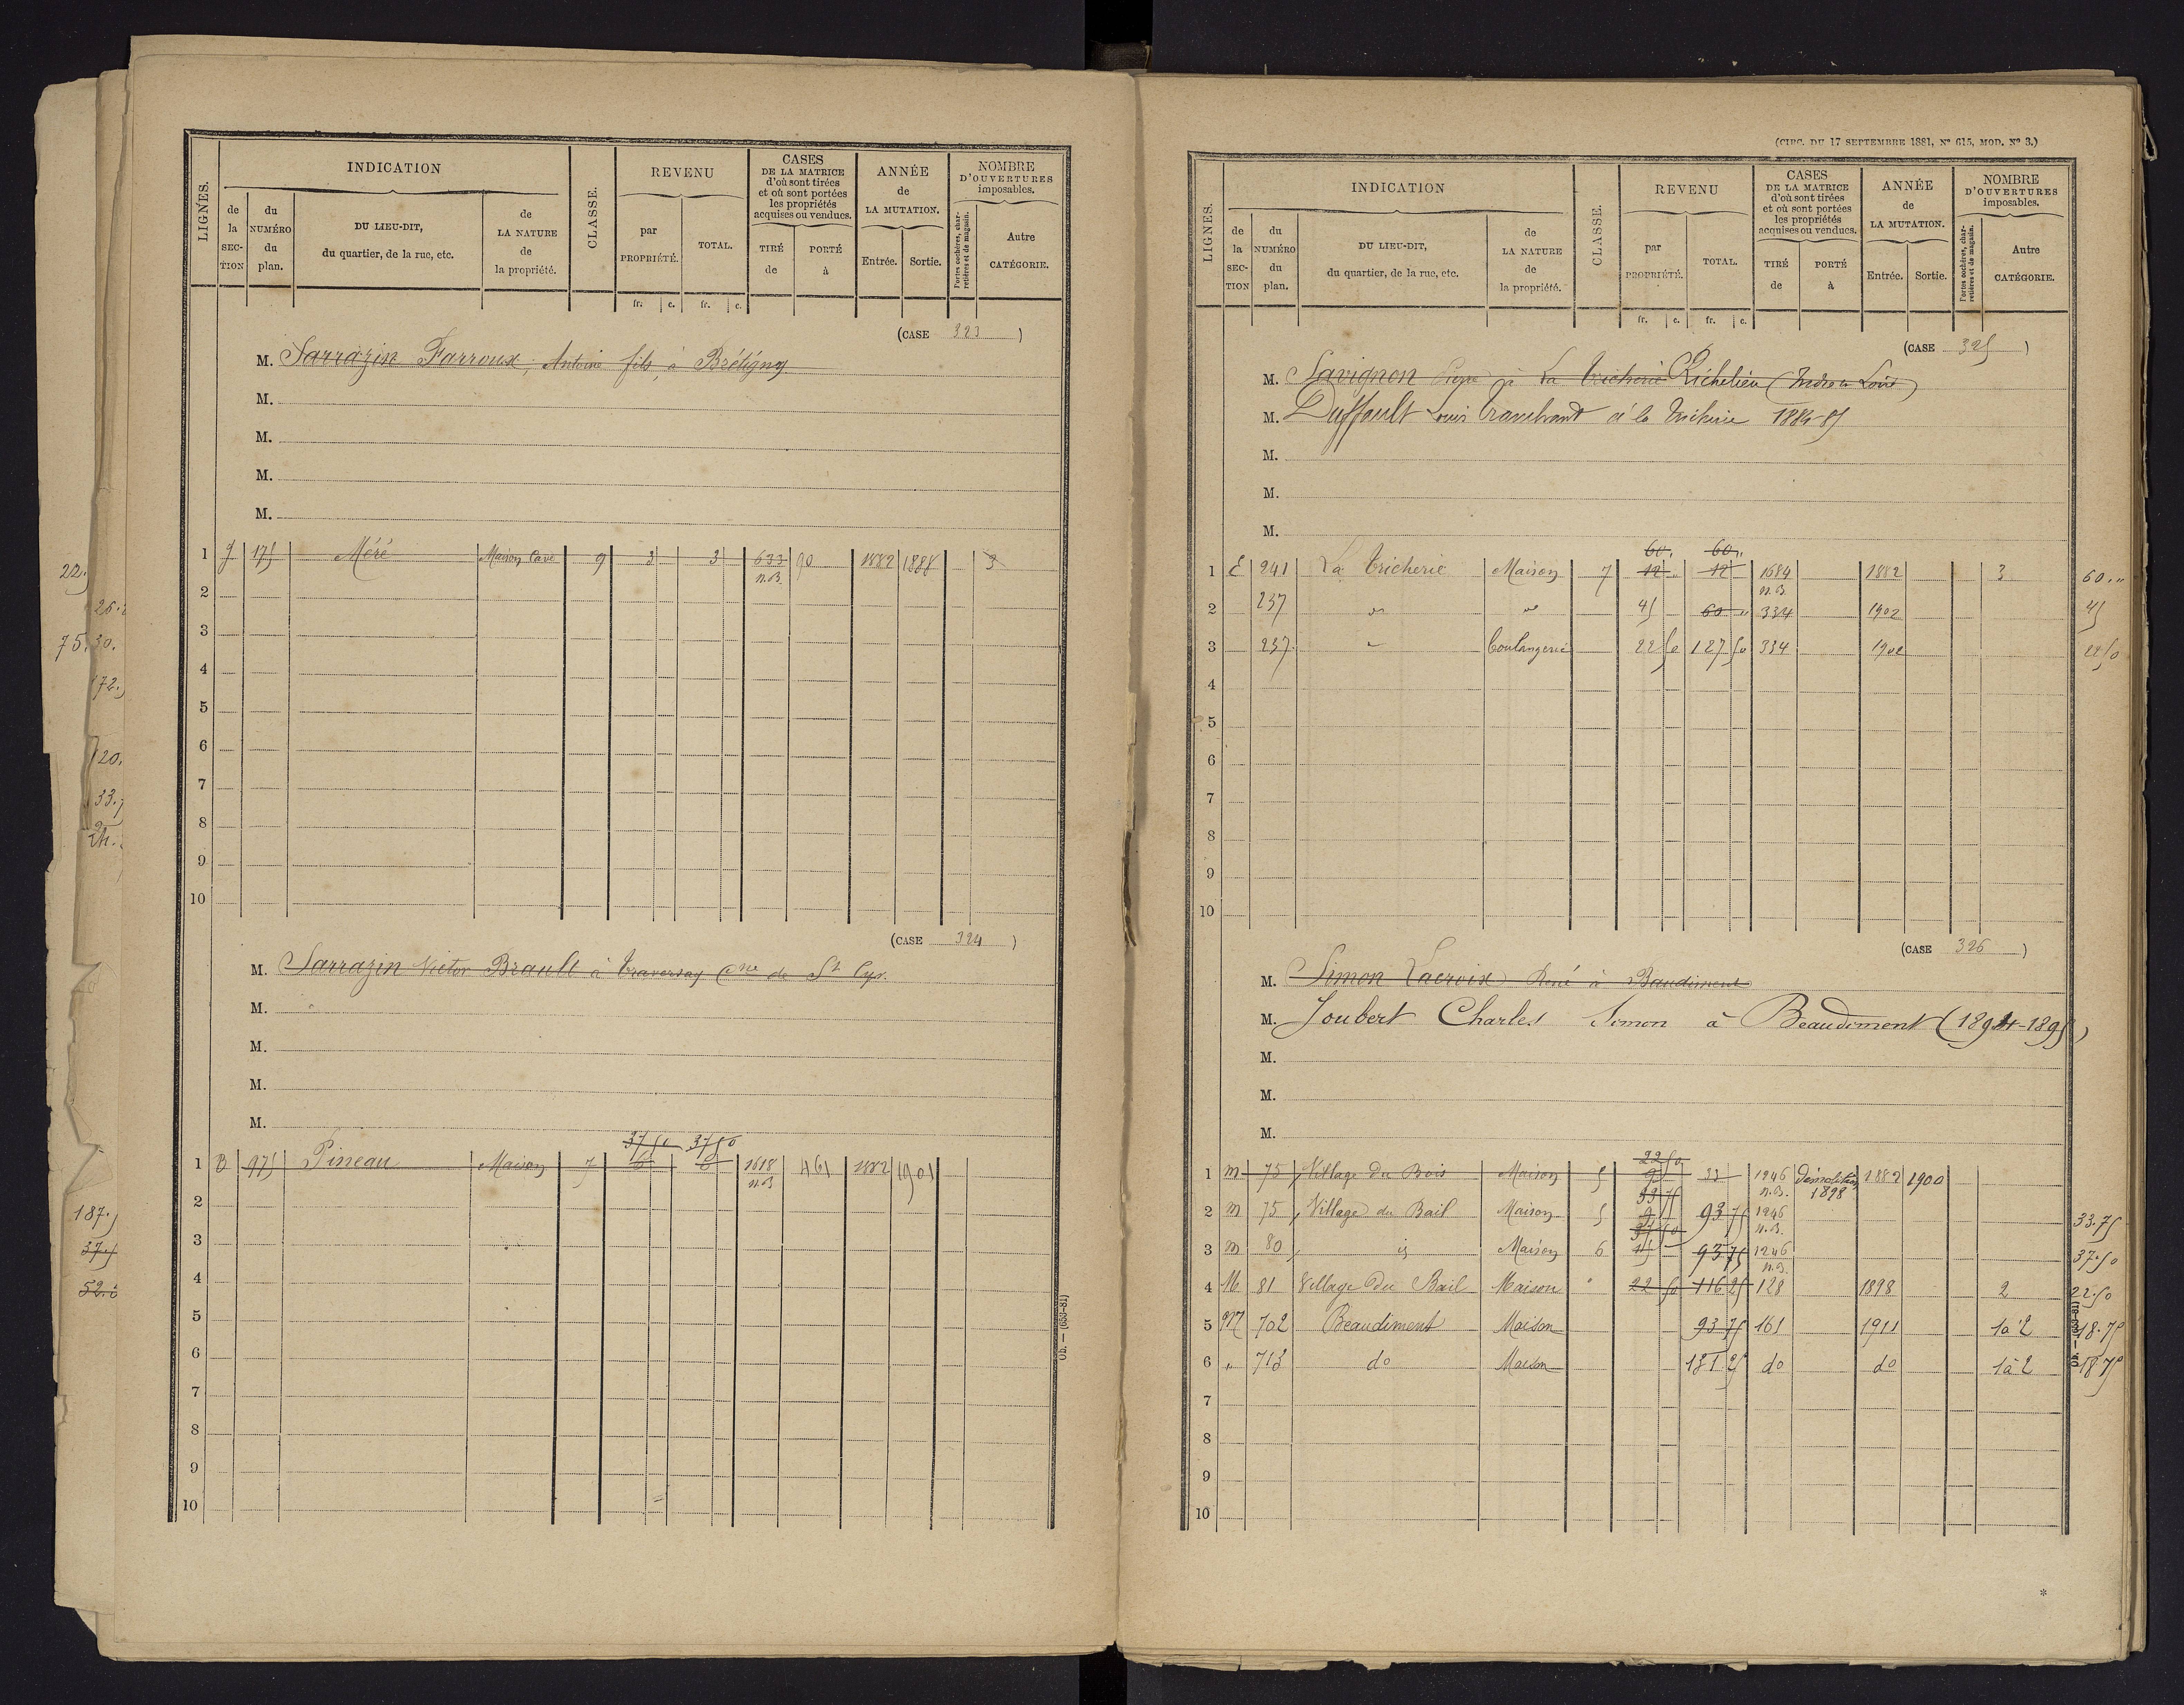 LIGNES.
INDICATION
de la SECTION
du NUMÉRO du plan.
DU LIEU-DIT, du quartier, de la rue, etc.
de LA NATURE de la propriété.
CLASSE.
REVENU
par PROPRIÉTÉ.
TOTAL.
fr. c. fr. c.
CASES DE LA MATRICE d'où sont tirées et où sont portées les propriétés acquises ou vendues.
TIRÉ de
PORTÉ à
ANNÉE de LA MUTATION.
Entrée. Sortie.
NOMBRE D'OUVERTURES imposables.
Portes cochères, charretières et de magasin.
Autre CATÉGORIE.
(CASE 323)
M. Sarrazin Farroux, Antoine fils, à Brétigny
M.
M.
M.
M.
1 J 175 Méré Maison Cave 9 3 3 633 n.B. 90 1882 1888 3
2
3
4
5
6
7
8
9
10
(CASE 324)
M. Sarrazin Victor Brault à Traversay Cne de St Cyr.
M.
M.
M.
M.
37 50 37 50
1 B 975 Pineau Maison 7 6 6 1618 n.B 461 1882 1901
2
3
4
5
6
7
8
9
10
Ob. — (653-81)
22.
26.
75. 30.
172.
120.
33.
187.
37.5
52.
(CIRC. DU 17 SEPTEMBRE 1881, No 615, MOD. No 3.)
LIGNES.
INDICATION
de la SECTION
du NUMÉRO du plan.
DU LIEU-DIT, du quartier, de la rue, etc.
de LA NATURE de la propriété.
CLASSE.
REVENU
par PROPRIÉTÉ.
TOTAL.
fr. c. fr. c.
CASES DE LA MATRICE d'où sont tirées et où sont portées les propriétés acquises ou vendues.
TIRÉ de
PORTÉ à
ANNÉE de LA MUTATION.
Entrée. Sortie.
NOMBRE D'OUVERTURES imposables.
Portes cochères, charretières et de magasin.
Autre CATÉGORIE.
(CASE 325)
M. Savignon à La Tricherie Richelieu (Indre et Loire)
M. Duffault Louis Tranchant à la Tricherie 1884-85
M.
M.
M.
60. 60 "
1 E 241 La Tricherie Maison 7 12 " 12 1684 n.B. 1882 3 60. "
2 237 " " 45 60 " 334 1902 45
3 237 " Boulangerie 22 50 127 50 334 1902 22 50
4
5
6
7
8
9
10
(CASE 326)
M. Simon Lacroix René à Baudiment
M. Joubert Charles Simon à Beaudiment (1894-1895)
M.
M.
M.
22 50
1 M 75 Village du Bois Maison 5 9 33 1246 n.B. Démolition 1898 1882 1900
33 75
2 M 75 Village du Bail Maison 5 9 93 75 1246 n.B. 33.75
37 50
3 M 80 id Maison 6 15 93 75 1246 n.B. 37.50
4 M 81 Village du Bail Maison " 22 50 116 25 128 1898 2 22.50
5 M 702 Beaudiment Maison 93 75 161 1911 1 à 2 18.75
6 " 713 do Maison 131 25 do do 1 à 2 18.75
7
8
9
10
Ob. — (653-81)
*